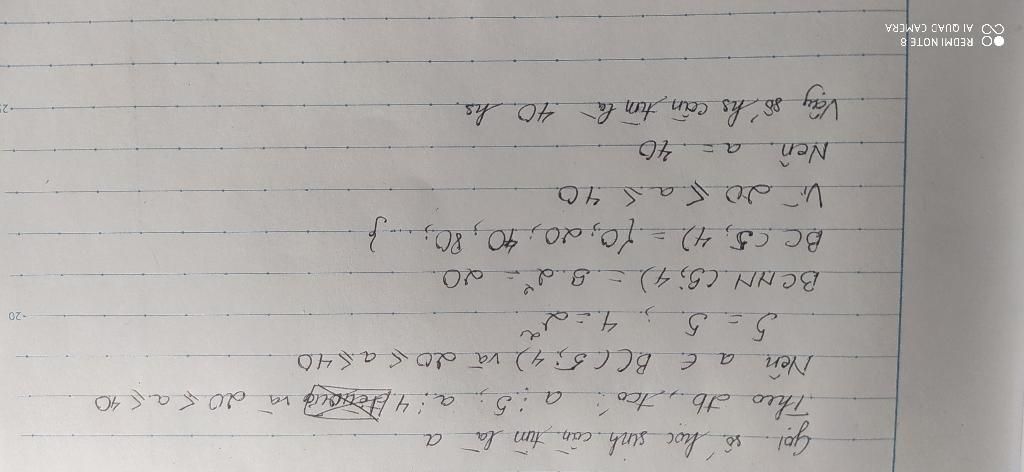 Gọi số học sinh cần tìm là a
Theo đb, tcó: a ⋮ 5; a ⋮ 4 và 20 ≤ a ≤ 40
Nên a ∈ BC(5;4) và 20 ≤ a ≤ 40
5 = 5 ; 4 = 2²
BCNN (5;4) = 5.2² = 20
BC (5;4) = {0;20;40;80;...}
Vì 20 ≤ a ≤ 40
Nên a = 40
Vậy số hs cần tìm là 40 hs.
20
25
REDMI NOTE 8
AI QUAD CAMERA